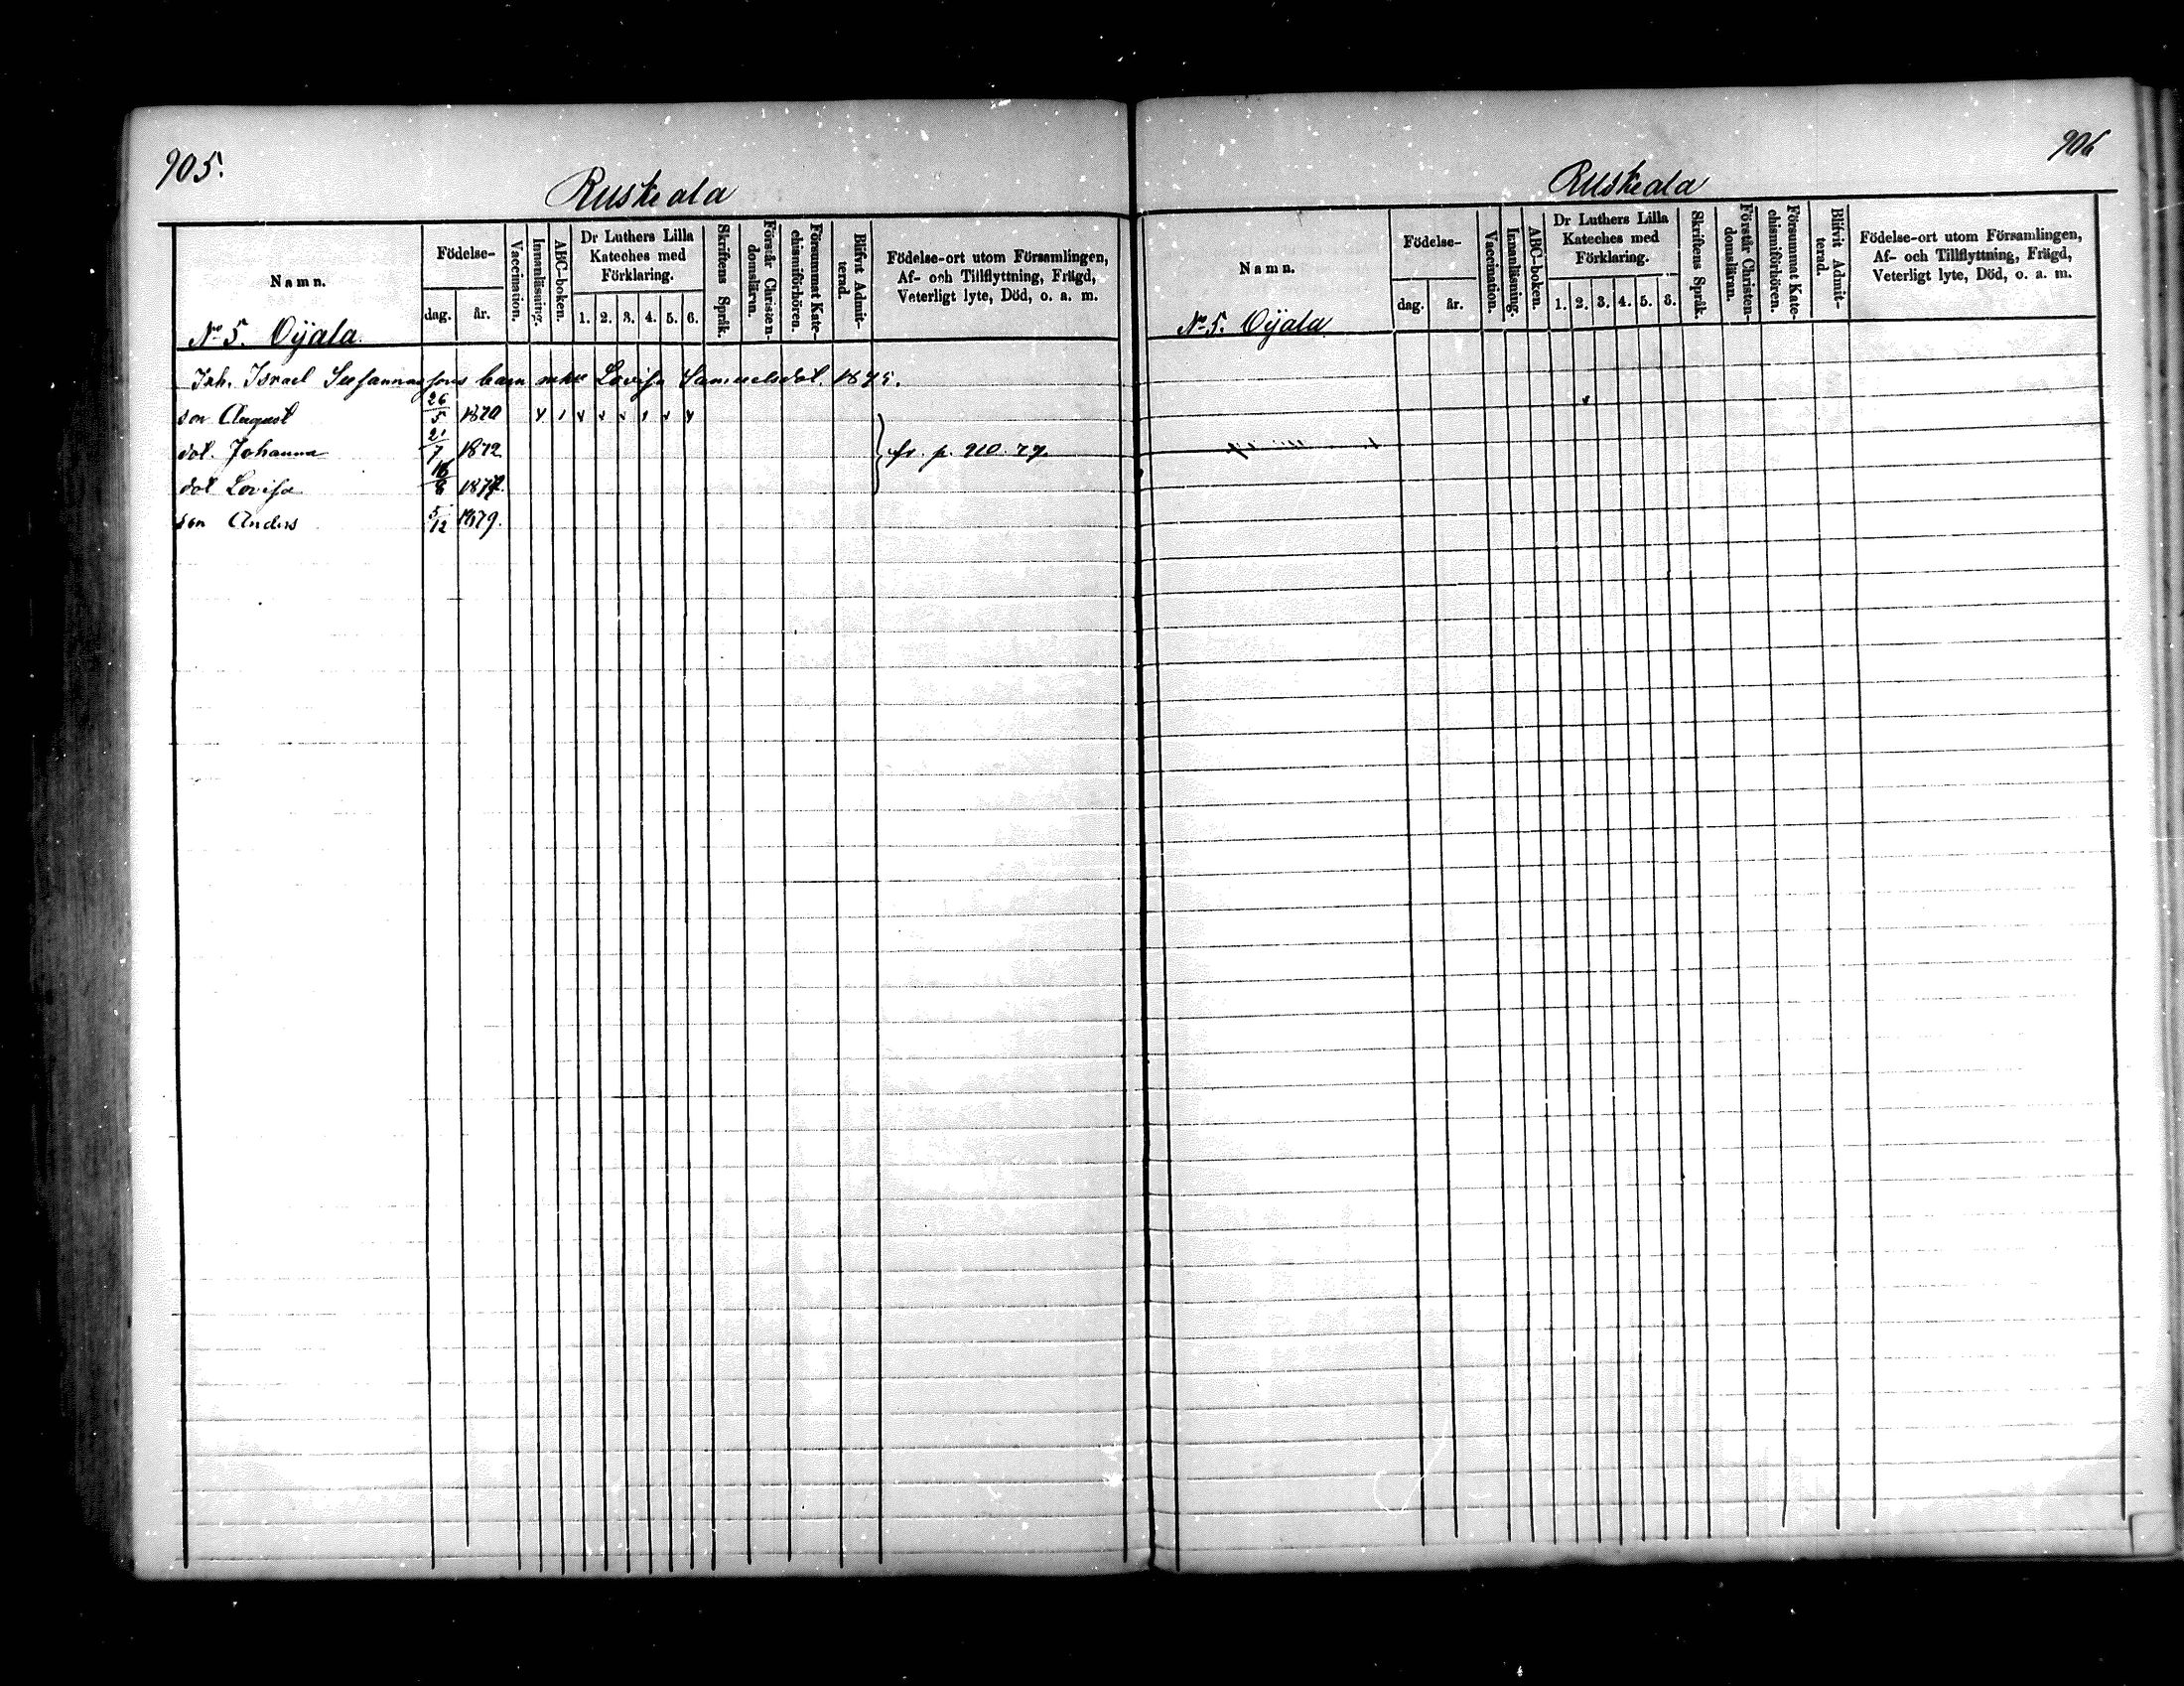 905.
Ruskeala
Namn.
Födelse-
dag.
år.
Vaccination.
Innanläsning.
ABC-boken.
Dr Luthers Lilla
Kateches med
Förklaring.
1. 2. 3. 4. 5. 6.
Skriftens Språk.
Förstår Christen-
domsläran.
Försummat Kate-
chismiförhören.
Blifvit Admit-
terad.
Födelse-ort utom Församlingen,
Af- och Tillflyttning, Frägd,
Veterligt lyte, Död, o. a. m.
No 5. Oÿala.
Joh. Israel Susannasons barn m. Lovisa Samuelsdot. 1875.
son August 26/5 1870
dot. Johanna 21/7 1872 fr. p. 910. 77
dot Lovisa 16/8 1877
son Anders 5/12 1879.
906
Ruskeala
Namn.
Födelse-
dag.
år.
Vaccination.
Innanläsning.
ABC-boken.
Dr Luthers Lilla
Kateches med
Förklaring.
1. 2. 3. 4. 5. 6.
Skriftens Språk.
Förstår Christen-
domsläran.
Försummat Kate-
chismiförhören.
Blifvit Admit-
terad.
Födelse-ort utom Församlingen,
Af- och Tillflyttning, Frägd,
Veterligt lyte, Död, o. a. m.
No 5. Oÿala